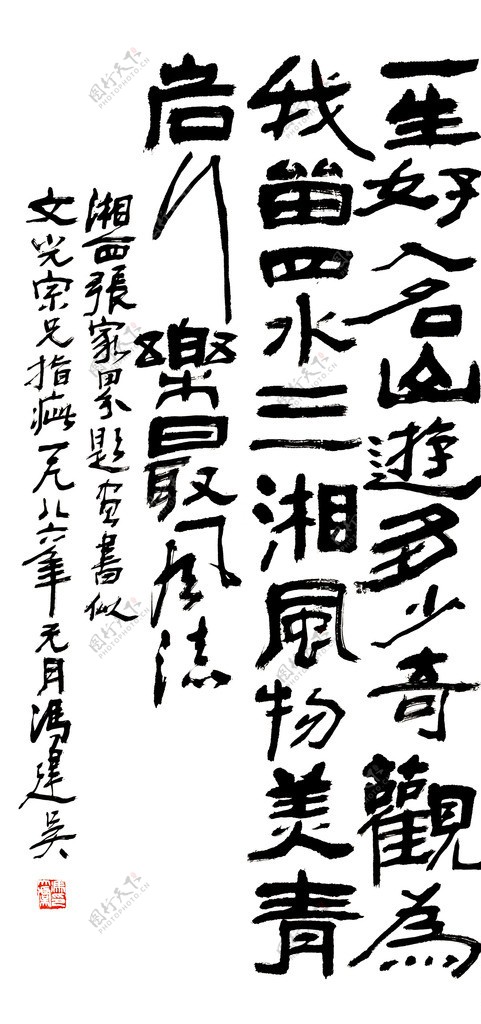 一生好入名山遊多少奇觀為
我留四水三湘風物美青
岩行樂最風流
湘西張家界題畫書似
文光宗兄指疵一九八六年元月馮建吳
图行天下 PHOTOPHOTO.CN